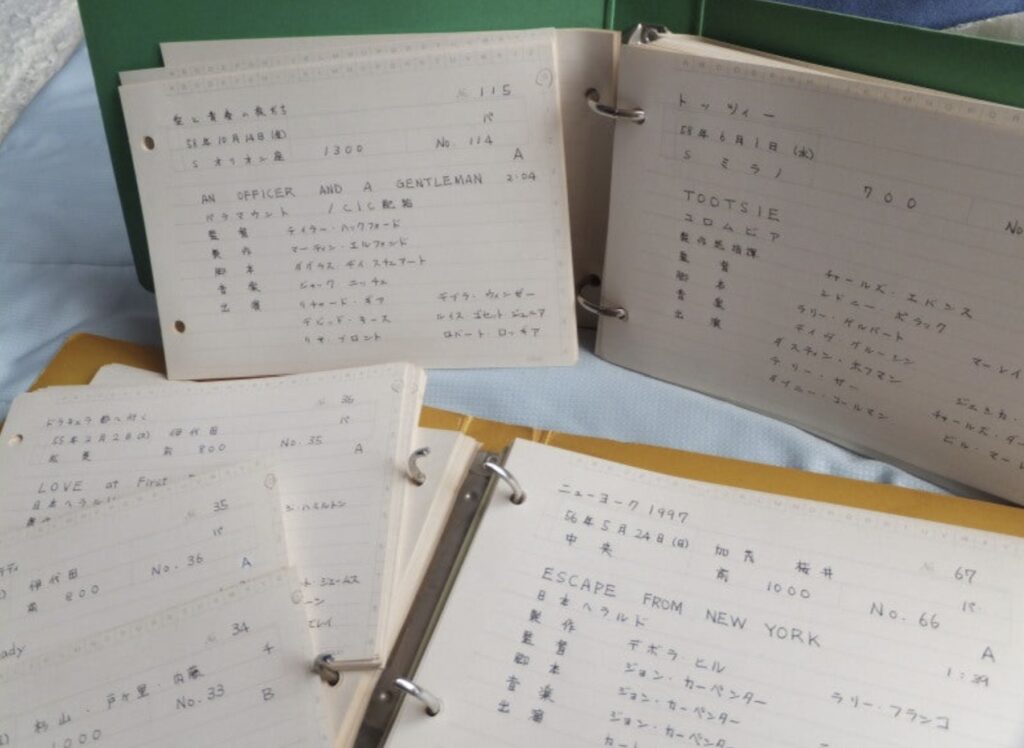 No. 115
愛と青春の旅だち
パ
58年10月14日(金)
S オリオン座 1300 No. 114
A
AN OFFICER AND A GENTLEMAN 2:04
パラマウント / CIC配給
監督 テイラー・ハックフォード
製作 マーティン・エルファンド
脚本 ダグラス・デイ・スチュアート
音楽 ジャック・ニッチェ
出演 リチャード・ギア デブラ・ウィンガー
デビッド・キース ルイス・ゴセット・ジュニア
リサ・ブロント ロバート・ロッギア
トッツィー
58年6月1日(水)
S ミラノ 700
No
TOOTSIE
コロムビア
製作総指揮 チャールズ・エバンス
監督 シドニー・ポラック
脚本 ラリー・ゲルバート マーレイ
音楽 デイヴ・グルーシン
出演 ダスティン・ホフマン ジェシカ・
テリー・ガー チャールズ・ダー
ダブニー・コールマン ビル・マーレ
No. 36
ドラキュラ都へ行く
パ
55年2月2日 伊代田
前 800 No. 35
A
LOVE at First
日本ヘラルド
ハミルトン
ジェームス
35
パ
伊代田 No. 36
前 800 A
34
ady 4
杉山・戸ケ里・内藤
No. 33
1000 B
ニューヨーク1997
56年5月24日(日) 加茂 桜井 67
中央 前 1000 パ
No. 66
ESCAPE FROM NEW YORK A
日本ヘラルド 1:39
製作 デボラ・ヒル ラリー・フランコ
監督 ジョン・カーペンター
脚本 ジョン・カーペンター
音楽 ジョン・カーペンター
出演 カート